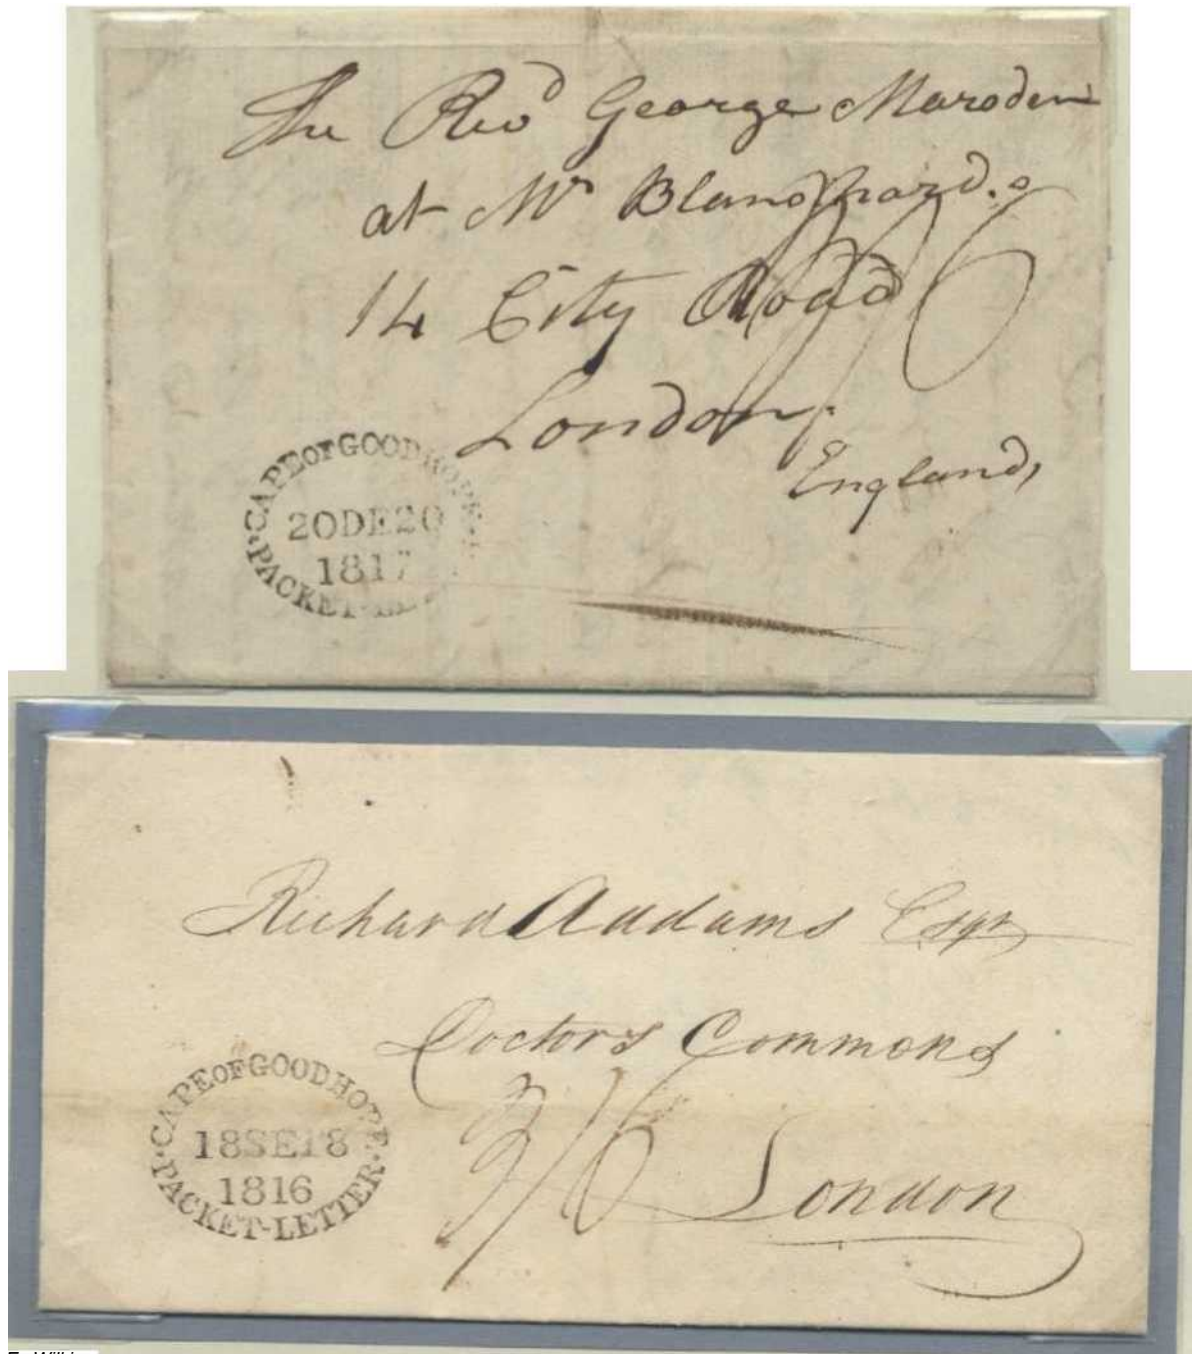 The Revd George Marsden
at Mr Blanshard.s
14 City Road
London.
England,
CAPE OF GOOD HOPE
20DE20
1817
PACKET-LE
Richard Addams Esqr
Doctors Commons
3/6
London
CAPE OF GOOD HOPE
18SE18
1816
PACKET-LETTER